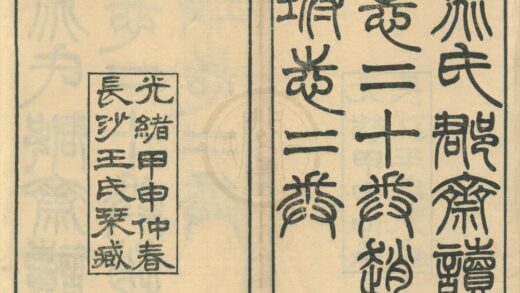 氏郡齋讀
志二十卷趙
坿志二卷
光緒甲申仲春
長沙王氏栞藏